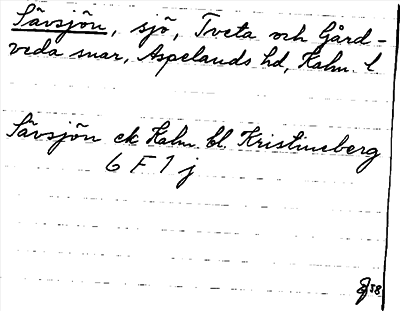 Sävsjön, sjö, Tveta och Gård-
veda snar, Aspelands hd, Kalm. l
Sävsjön ek Kalm. bl. Kristineberg
6 F 1 j